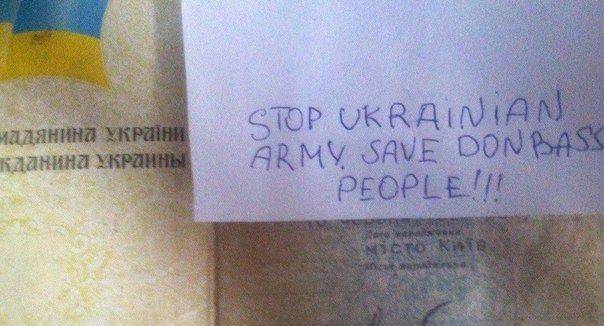 МАДЯНИНА УКРАЇНИ
ЖДАНИНА УКРАИНЫ
STOP UKRAINIAN
ARMY. SAVE DONBASS
PEOPLE!!!
Дата народження
МІСТО КИЇВ
Місце народження